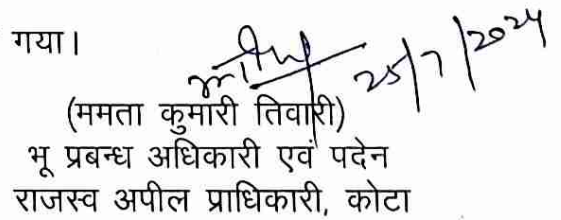 गया।
25/7/2024
(ममता कुमारी तिवारी)
भू प्रबन्ध अधिकारी एवं पदेन
राजस्व अपील प्राधिकारी, कोटा